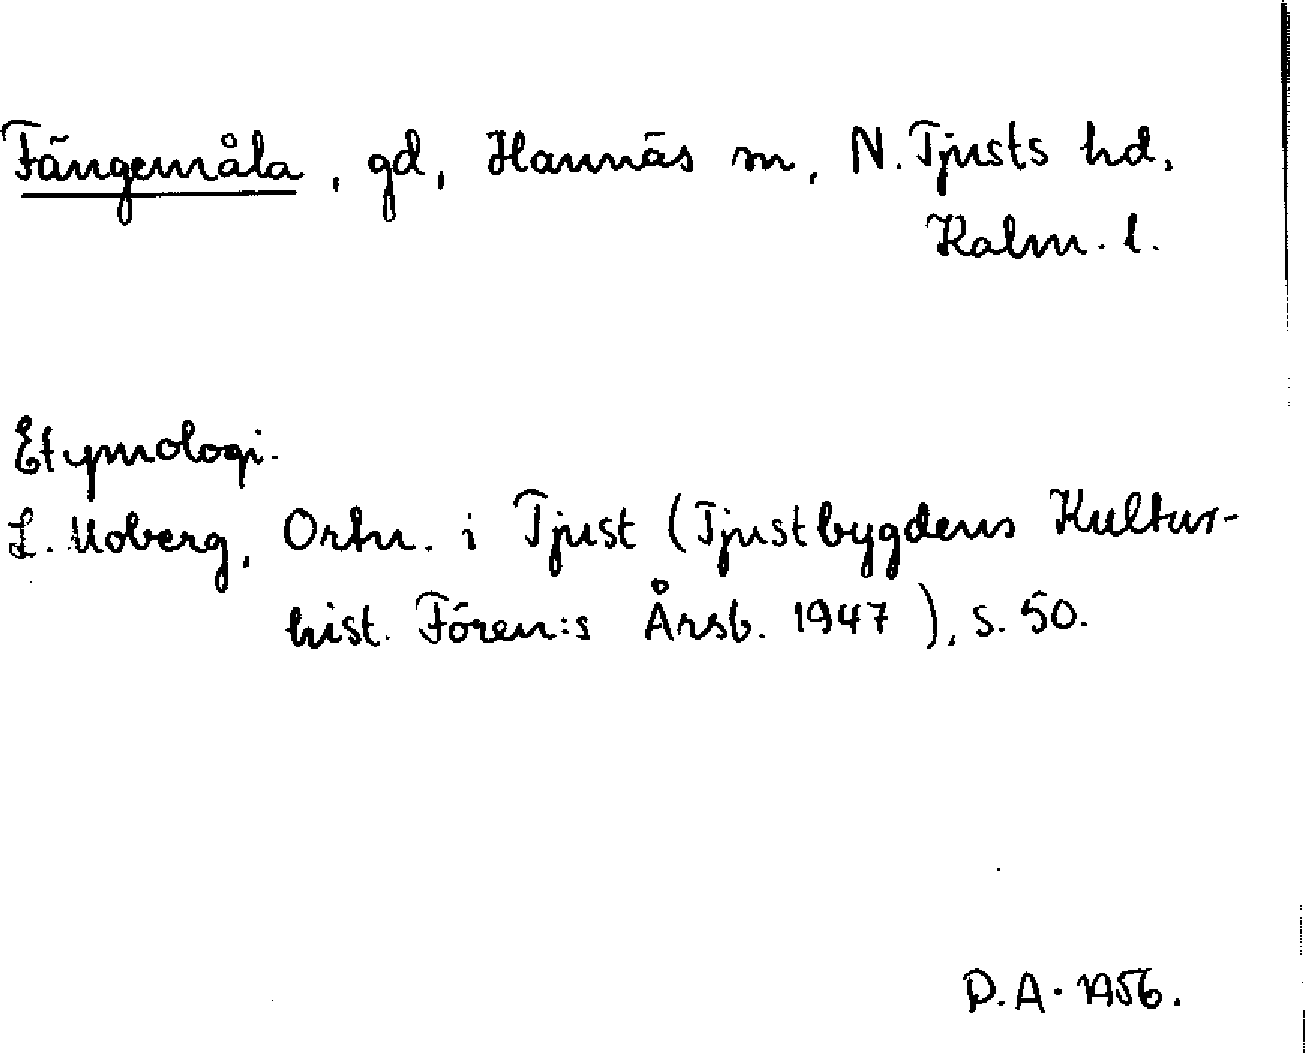 Fängemåla, gd, Hannäs sn, N. Tjusts hd,
Kalm. l.
Etymologi.
L. Moberg, Ortn. i Tjust (Tjustbygdens Kultur-
hist. Fören:s Årsb. 1947), s. 50.
D.A. 1956.